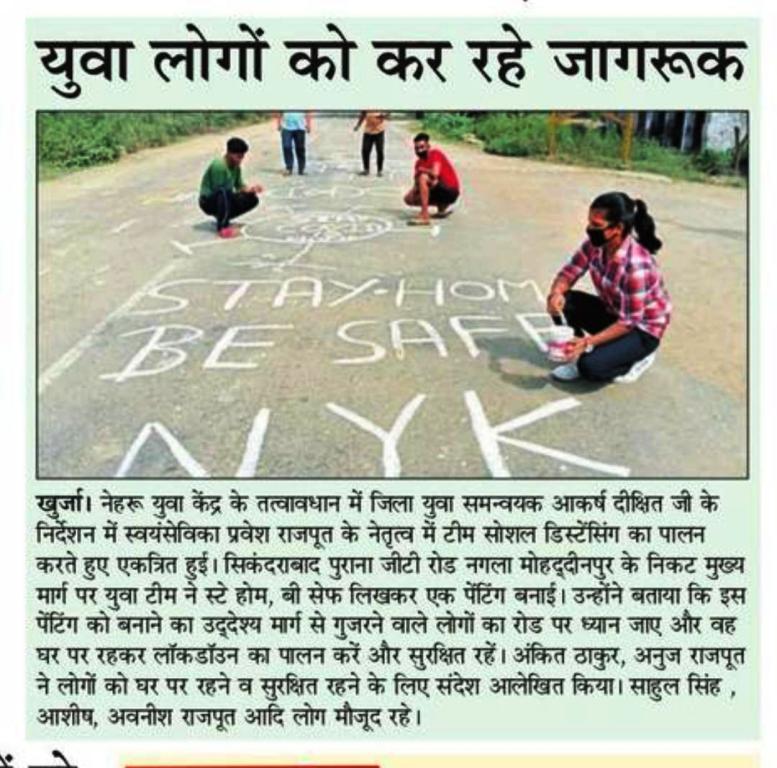 युवा लोगों को कर रहे जागरूक
STAY HOM
BE SAFE
NYK
खुर्जा। नेहरू युवा केंद्र के तत्वावधान में जिला युवा समन्वयक आकर्ष दीक्षित जी के
निर्देशन में स्वयंसेविका प्रवेश राजपूत के नेतृत्व में टीम सोशल डिस्टेंसिंग का पालन
करते हुए एकत्रित हुई। सिकंदराबाद पुराना जीटी रोड नगला मोहद्दीनपुर के निकट मुख्य
मार्ग पर युवा टीम ने स्टे होम, बी सेफ लिखकर एक पेंटिंग बनाई। उन्होंने बताया कि इस
पेंटिंग को बनाने का उद्देश्य मार्ग से गुजरने वाले लोगों का रोड पर ध्यान जाए और वह
घर पर रहकर लॉकडॉउन का पालन करें और सुरक्षित रहें। अंकित ठाकुर, अनुज राजपूत
ने लोगों को घर पर रहने व सुरक्षित रहने के लिए संदेश आलेखित किया। साहुल सिंह ,
आशीष, अवनीश राजपूत आदि लोग मौजूद रहे।